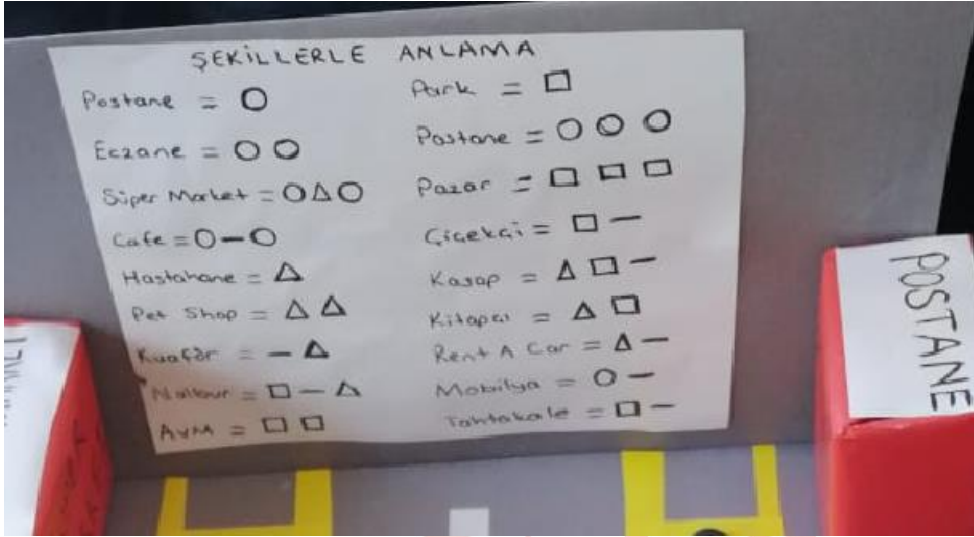 ŞEKİLLERLE ANLAMA
Postane = ○
Eczane = ○ ○
Süper Market = ○ △ ○
Cafe = ○ – ○
Hastahane = △
Pet Shop = △ △
Kuaför = – △
Nalbur = □ – △
AVM = □ □
Park = □
Pastane = ○ ○ ○
Pazar = □ □ □
Çiçekçi = □ –
Kasap = △ □ –
Kitapçı = △ □
Rent A Car = △ –
Mobilya = ○ –
Tahtakale = □ –
POSTANE